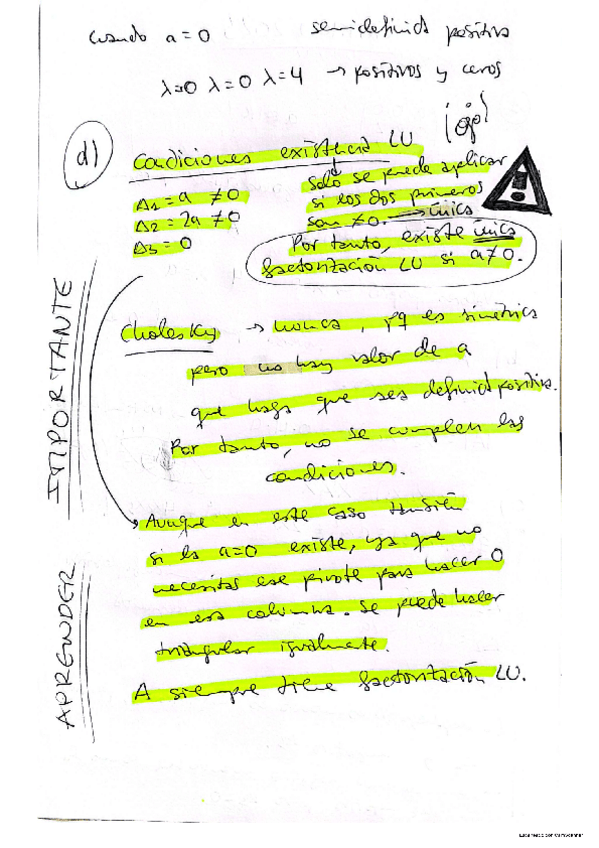 cuando a=0 semidefinida positiva
λ=0 λ=0 λ=4 → positivos y ceros
¡ojo!
d) Condiciones existencia LU
Δ1 = a ≠0
Δ2 = 2a ≠0
Δ3 = 0
Solo se puede aplicar
si los dos primeros
son ≠0. → única
Por tanto, existe única
factorización LU si a≠0.
IMPORTANTE
Cholesky → nunca, pq es simétrica
pero no hay valor de a
que haga que sea definida positiva.
Por tanto, no se cumplen las
condiciones.
APRENDER
Aunque en este caso también
si la a=0 existe, ya que no
necesitas ese pivote para hacer 0
en esa columna. Se puede hacer
triangular igualmente.
A siempre tiene factorización LU.